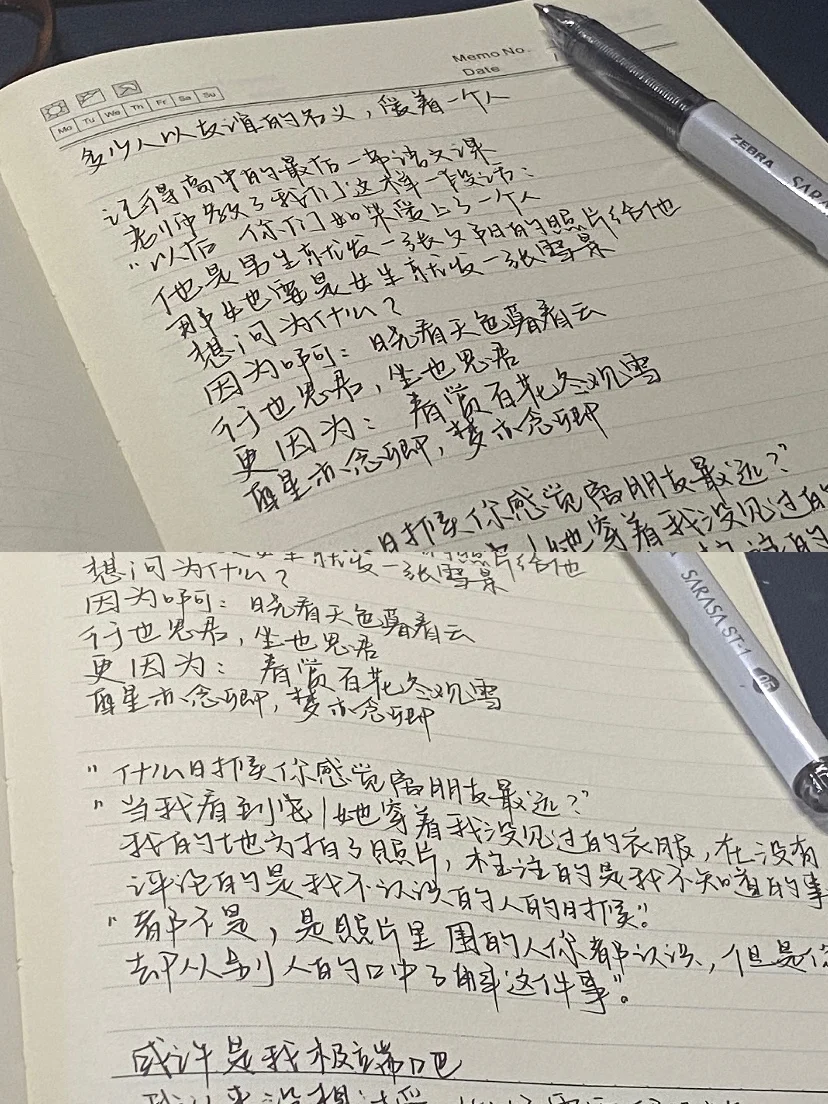 Memo No.
Date
Mo Tu We Th Fr Sa Su
多少人以友谊的名义，爱着一个人
记得高中的最后一节语文课
老师教了我们这样一段话：
"以后 你们如果爱上了一个人
他是男生就发一张夕阳的照片给他
那她要是女生就发一张雪景
想问为什么？
因为啊：晓看天色暮看云
行也思君，坐也思君
更因为：春赏百花冬观雪
醒亦念卿，梦亦念卿
时候你感觉离朋友最远？"
她穿着我没见过的
ZEBRA SARA
想问为什么？就发一张雪景
因为啊：晓看天色暮看云
行也思君，坐也思君
更因为：春赏百花冬观雪
醒亦念卿，梦亦念卿
SARASA ST-1 05
"什么时候你感觉离朋友最远？"
"当我看到他/她穿着我没见过的衣服，在没有
我的地方拍了照片，标注的是我不知道的事
评论的是我不认识的人的时候"。
"都不是，是照片里面的人你都认识，但是你
却从别人的口中了解到这件事"。
或许是我极端吧